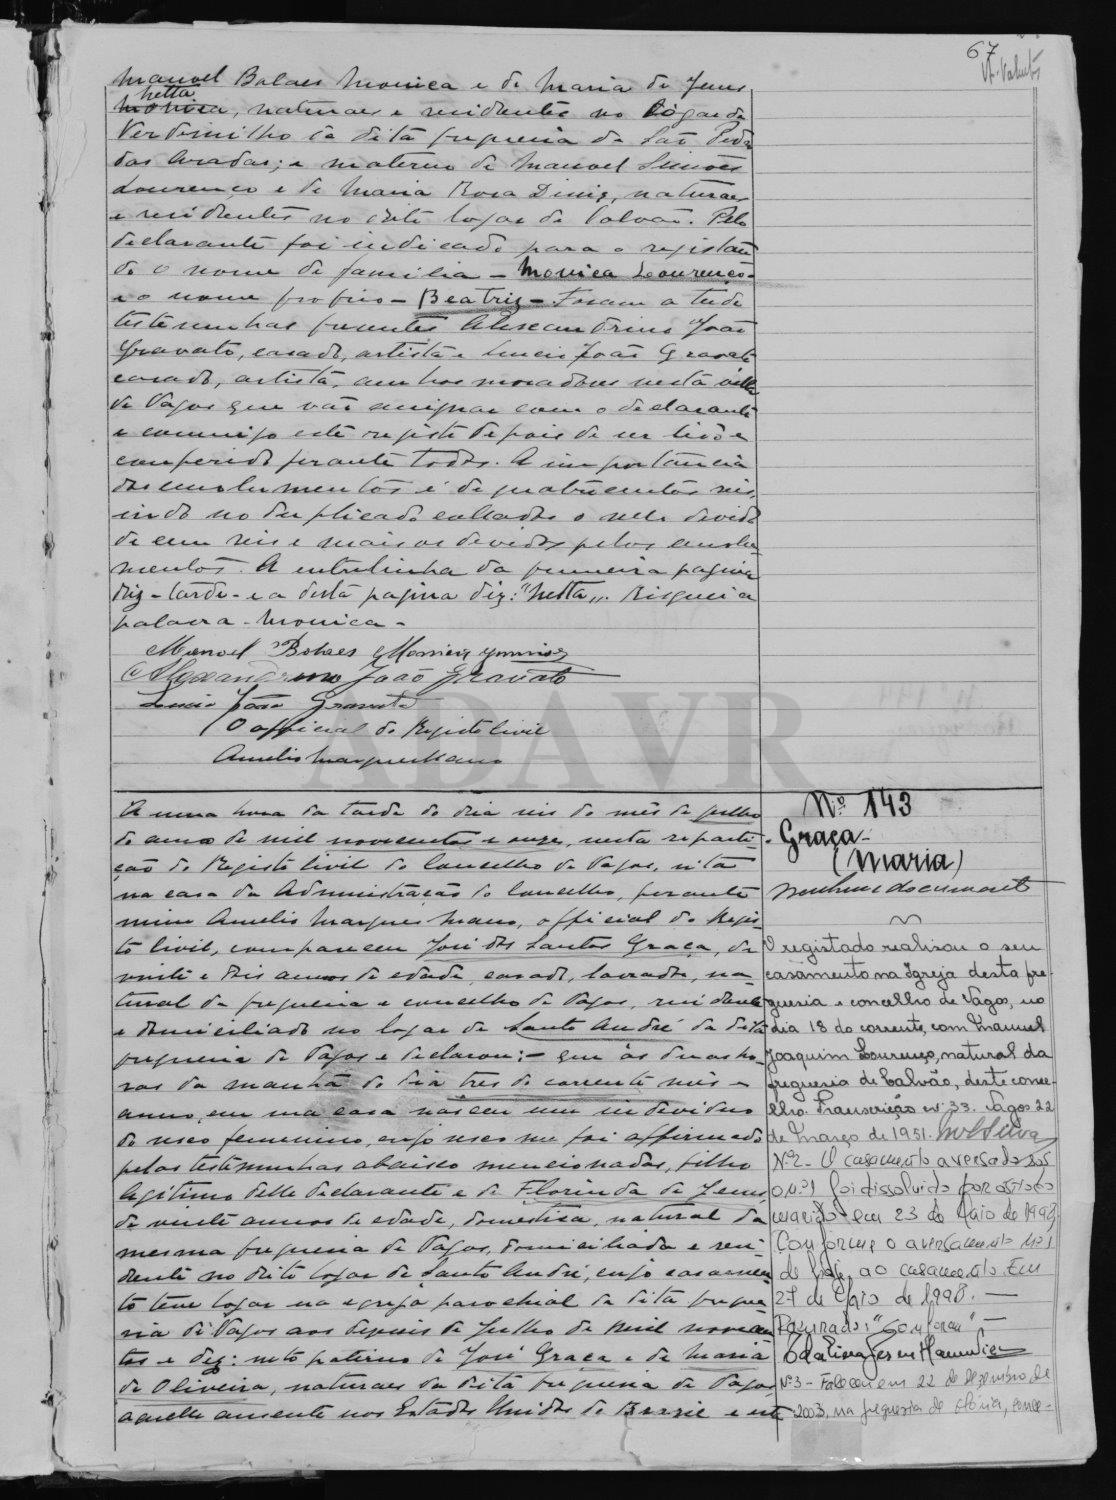 67
Manoel Bolaes Monica e de Maria de Jesus
Netta
Monica, naturaes e residentes no logar de
Verdemilho da dita freguesia de São Pedro
das Aradas; e materno de Manoel Simões
Lourenço e de Maria Rosa Diniz, naturaes
e residentes no dito logar de Calvão. Pelo
declarante foi indicado para o registan-
do o nome de familia - Monica Lourenço -
e o nome proprio - Beatriz - Foram a tudo
testemunhas presentes Alexandrino João
Gravato, casado, artista e Lucio João Gravato
casado, artista, ambos moradores nesta villa
de Vagos que vão assignar com o declarante
e commigo este registo depois de ser lido e
conferido perante todos. A importancia
dos emolumentos é de quatrocentos reis,
indo no duplicado collados o sello devido
de cem reis e mais os devidos pelos emolu-
mentos. A entrelinha da primeira pagina
diz - tarde - e a desta pagina diz: "Netta". Risquei a
palavra - Monica -
Manoel Bolaes Monica
Alexandrino João Gravato
Lucio João Gravato
O official do Registo Civil
Amelio Marques Mano
ADAVR
A uma hora da tarde do dia seis do mês de julho
do anno de mil novecentos e onze, nesta reparti-
ção do Registo Civil do Concelho de Vagos, sita
na casa da Administração do Concelho, perante
mim Amelio Marques Mano, official do Regis-
to Civil, compareceu José dos Santos Graça, de
vinte e dois annos de edade, casado, lavrador, na-
tural da freguesia e concelho de Vagos, residente
e domiciliado no logar de Santo André da dita
freguesia de Vagos e declarou: - que ás duas ho-
ras da manhã do dia tres do corrente mês e
anno, em sua casa nasceu um individuo
do sexo femenino, cujo sexo me foi affirmado
pelas testemunhas abaixo mencionadas, filho
legitimo delle declarante e de Florinda de Jesus,
de vinte annos de edade, domestica, natural da
mesma freguesia de Vagos, domiciliada e resi-
dente no dito logar de Santo André, cujo casamen-
to teve logar na egreja parochial da dita fregue-
sia de Vagos aos de Julho de mil novecen-
tos e dez: neto paterno de José Graça e de Maria
de Oliveira, naturaes da dita freguesia de Vagos
aquelle ausente nos Estados Unidos do Brazil e esta
Nº 143
Graça -
(Maria)
Nenhum documento
O registado realisou o seu
casamento na Igreja desta fre-
guesia e concelho de Vagos, no
dia 18 do corrente, com Manuel
Joaquim Lourenço, natural da
freguesia de Calvão, deste conce-
lho. Transcrição nº 33. Vagos 22
de Março de 1931.
Nº2 - O casamento averbado sob
o nº1 foi dissolvido por óbito do
marido em 23 de Maio de 1998,
Conforme o averbamento nº1
de hoje, ao casamento. Em
27 de Maio de 1998. —
Rasurado: "Conforme" —
Nº3 - Faleceu em 22 de Dezembro de
2003, na freguesia de Glória, conce-